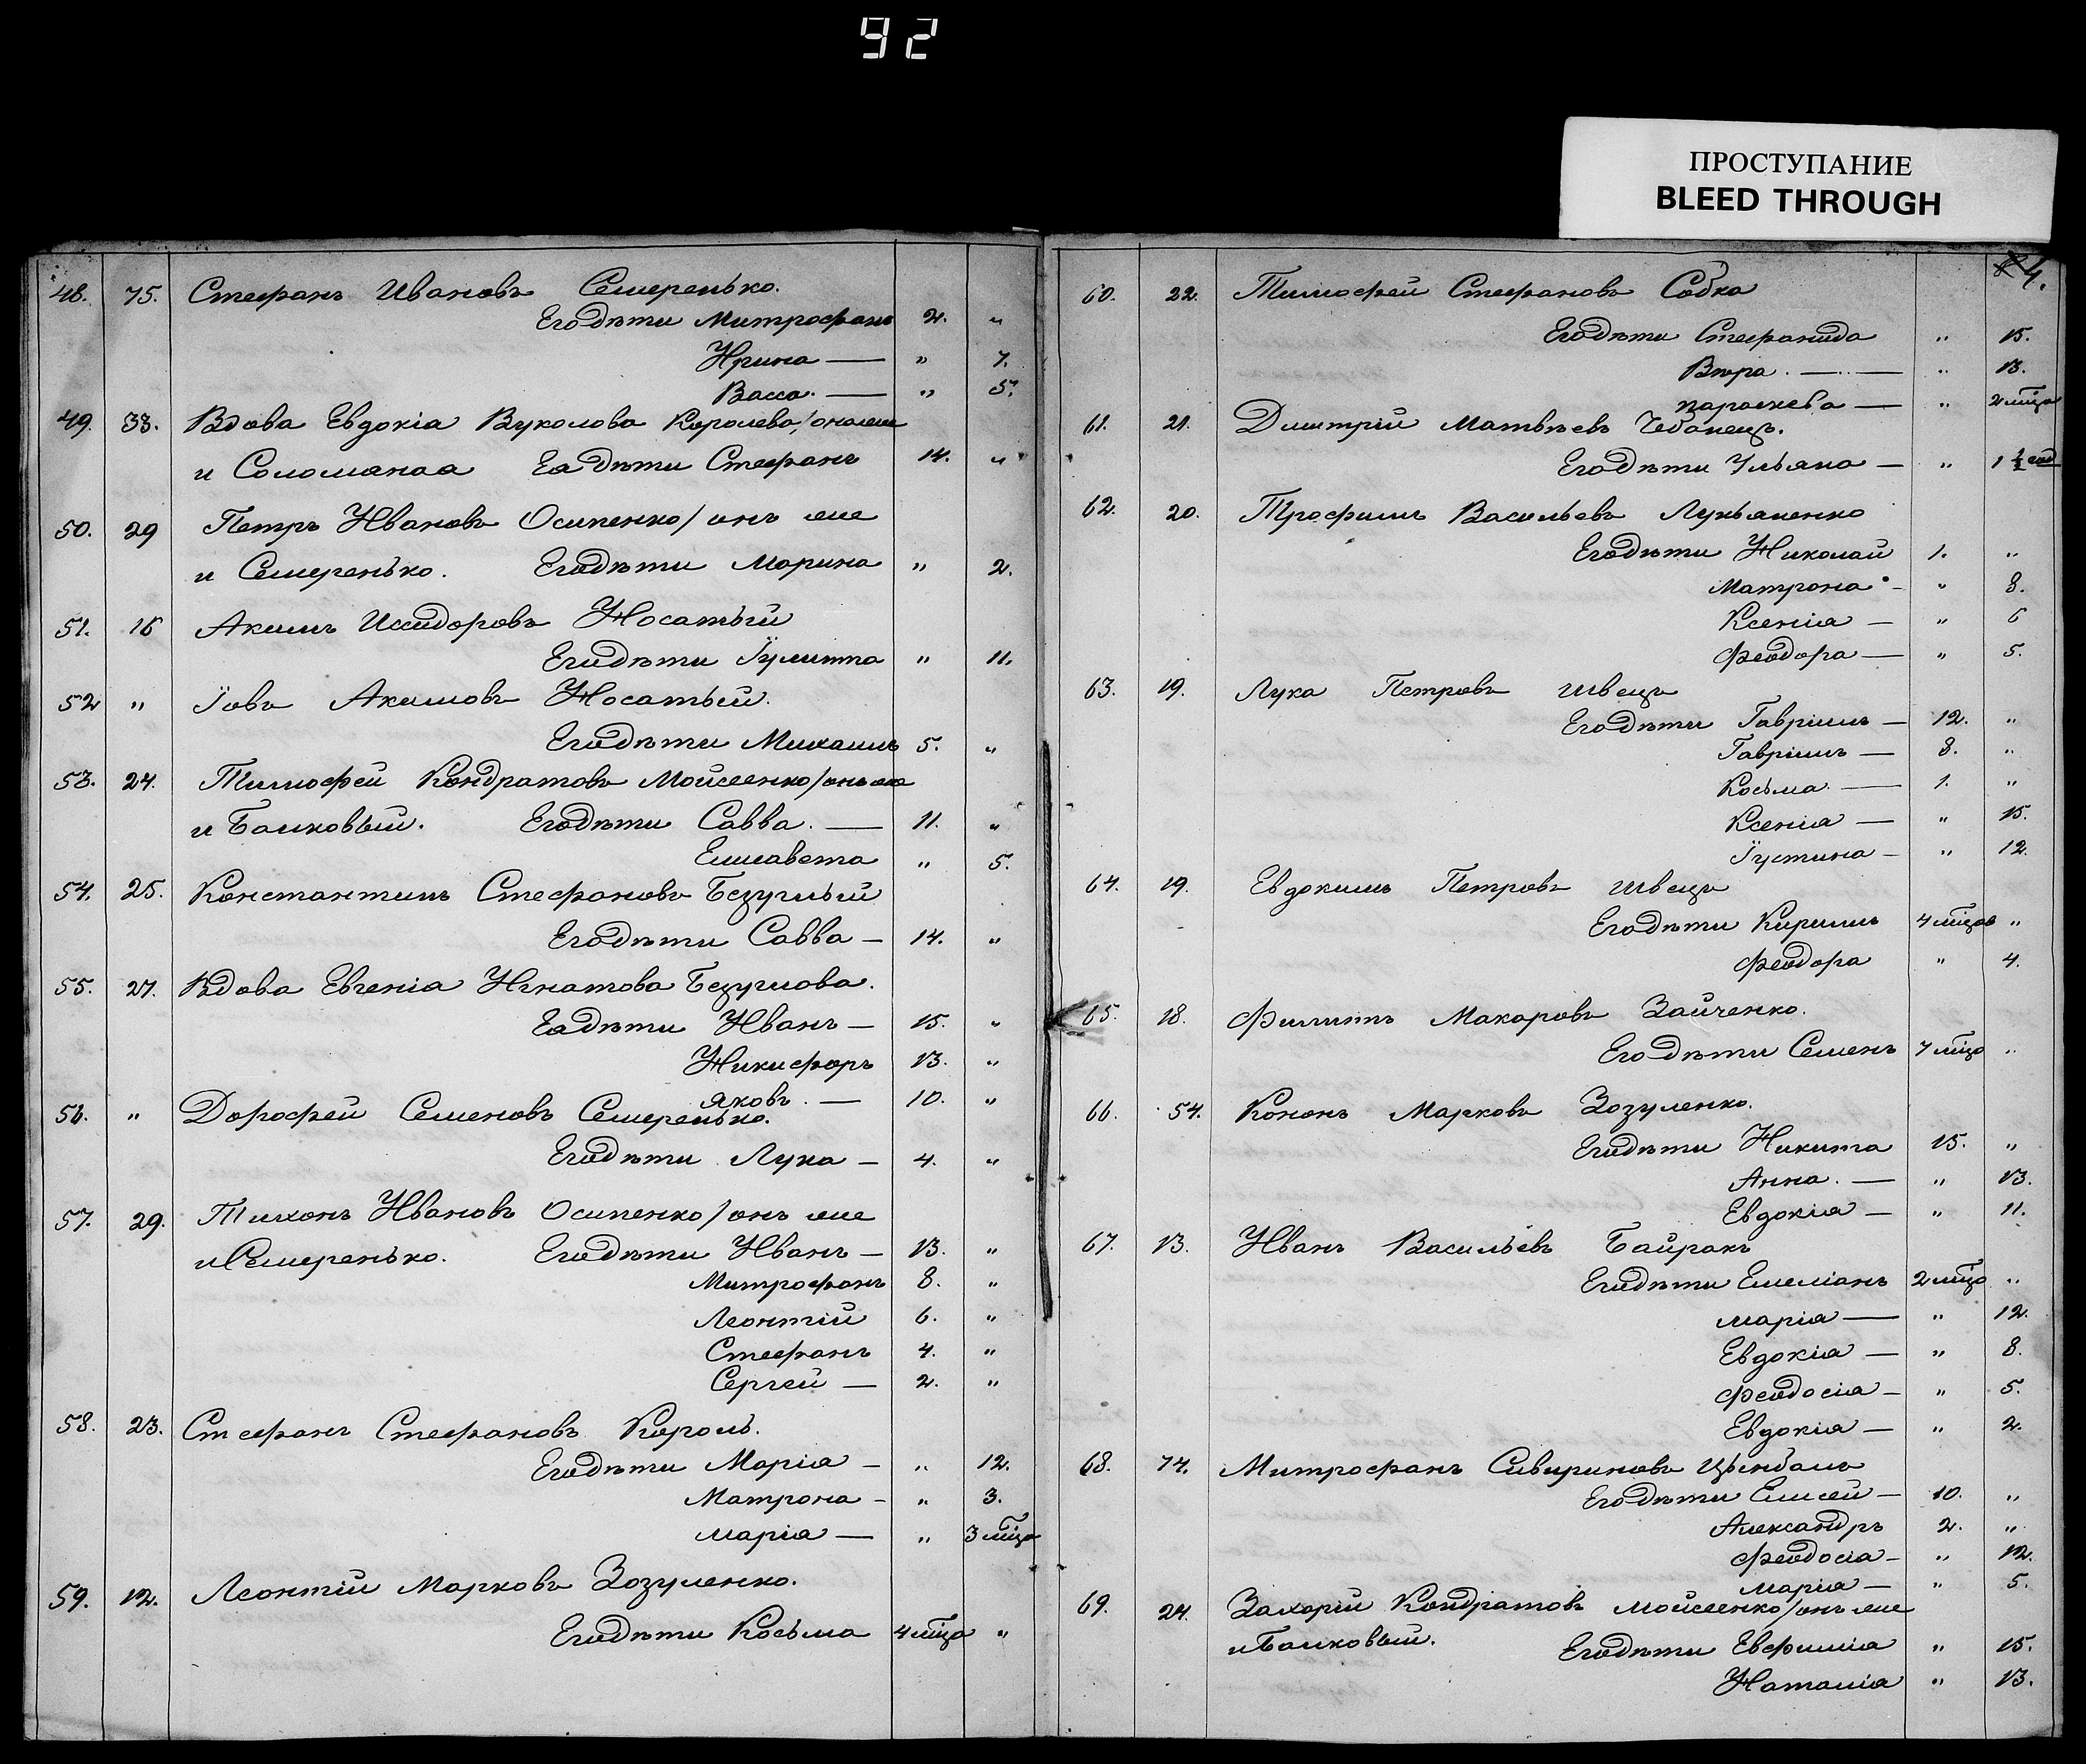 92
ПРОСТУПАНИЕ
BLEED THROUGH
48. 75. Стефанъ Ивановъ Семеренько.
Его дѣти Митрофанъ 2. "
Ирина — " 7.
Васса. — " 5.
49. 33. Вдова Евдокія Вуколова Королева/она же
и Соломаная Ея дѣти Стефанъ 14. "
50. 29 Петръ Ивановъ Осипенко/онъ же
и Семеренько. Его дѣти Марина " 2.
51. 16 Акимъ Исидоровъ Носатый
Его дѣти Іулитта " 11.
52 " Іовъ Акимовъ Носатый.
Его дѣти Михаилъ 5. "
53. 24. Тимофей Кондратовъ Мойсеенко/онъ же
и Балковый. Его дѣти Савва. — 11. "
Елисавета " 5.
54. 25. Константинъ Стефановъ Безуглый
Его дѣти Савва — 14. "
55. 27. Вдова Евгенія Игнатова Безуглова.
Ея дѣти Иванъ — 15. "
Никифоръ 13. "
Яковъ. — 10. "
56. " Дорофей Семеновъ Семеренько.
Его дѣти Лука — 4. "
57. 29. Тихонъ Ивановъ Осипенко/онъ же
и Семеренько. Его дѣти Иванъ — 13. "
Митрофанъ 8. "
Леонтій 6. "
Стефанъ 4. "
Сергей — 2. "
58. 23. Стефанъ Стефановъ Король.
Его дѣти Марія — " 12.
Матрона — " 3.
Марія — " 3 мѣца
59. 12. Леонтій Марковъ Зозуленко.
Его дѣти Косьма 4 мѣца "
4.
60. 22. Тимофей Стефановъ Собка
Его дѣти Стефанида " 15.
Вѣра. — " 13.
Параскева — " 2 мѣца
61. 21. Дмитрій Матвѣевъ Чебанецъ.
Его дѣти Ульяна — " 1 1/2 год
62. 20. Трофимъ Васильевъ Лукьяненко
Его дѣти Николай 1. "
Матрона — " 8.
Ксенія — " 6
Феодора — " 5.
63. 19. Лука Петровъ Швецъ
Его дѣти Гавріилъ — 12. "
Гавріилъ — 8. "
Косьма. — 1. "
Ксенія — " 15.
Іустина — " 12.
64. 19. Евдокимъ Петровъ Швецъ
Его дѣти Кирилъ 4 мѣцов "
Феодора " 4.
65. 18. Филиппъ Макаровъ Зайченко.
Его дѣти Семенъ 7 мѣцо "
66. 54. Кононъ Марковъ Зозуленко.
Его дѣти Никита 15. "
Анна. — " 13.
Евдокія — " 11.
67. 13. Иванъ Васильевъ Байракъ
Его дѣти Емеліанъ 2 мѣцо "
Марія — " 12.
Евдокія — " 8.
Феодосія — " 5.
Евдокія — " 2.
68. 74. Митрофанъ Сивириновъ Цымбалъ
Его дѣти Елисей — 10. "
Александръ 2. "
Феодосія — " 12.
Марія — " 5.
69. 24. Захарій Кондратовъ Мойсеенко/онъ же
и Балковый. Его дѣти Евфимія " 15.
Наталія " 13.